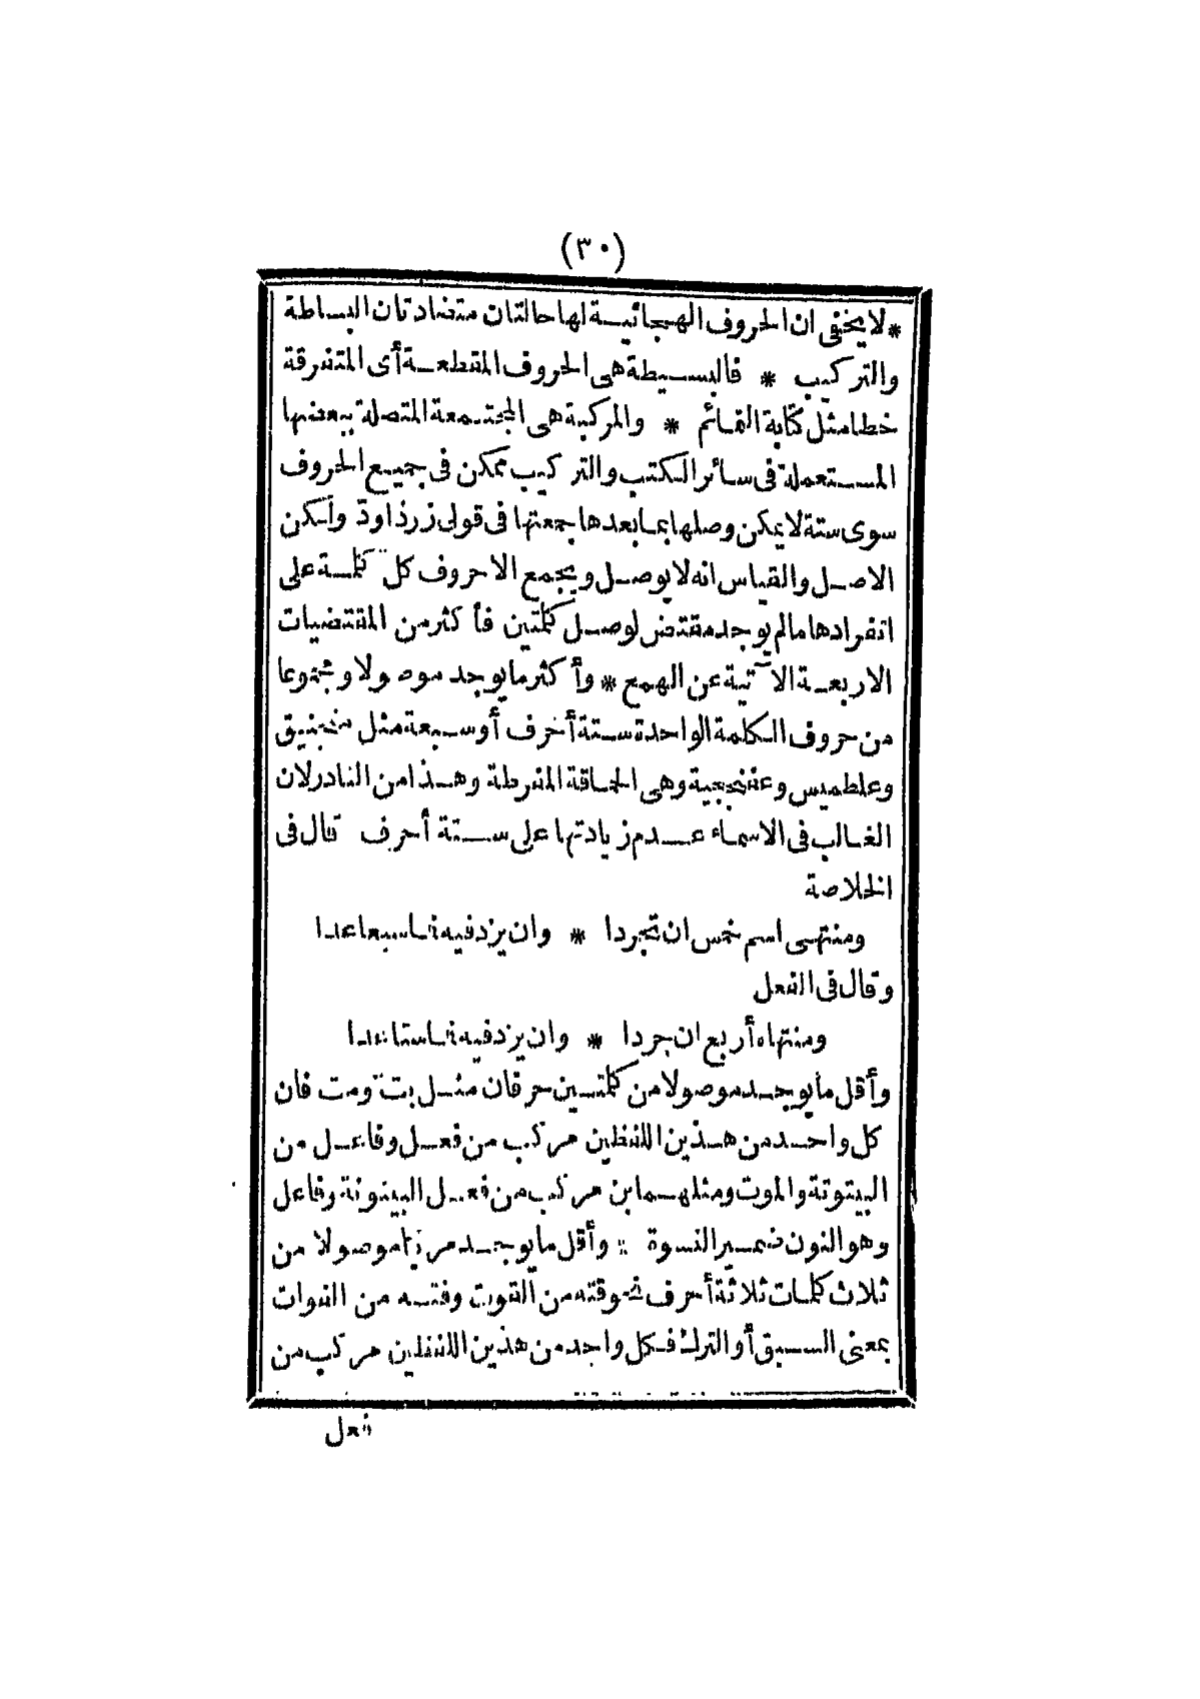 (٣٠)
* لا يخفى ان الحروف الهجائية لها حالتان متضادتان البساطة
والتركيب * فالبسيطة هى الحروف المتقطعة أى المتفرقة
خطا مثل كتابة التمائم * والمركبة هى المجتمعة المتصلة ببعضها
المستعملة فى سائر الكتب والتركيب ممكن فى جميع الحروف
سوى ستة لا يمكن وصلها بما بعدها جمعتها فى قولى زرذاود ولكن
الاصل والقياس انه لا يوصل ويجمع الاحروف كل كلمة على
انفرادها مالم يوجد مقتض لوصل كلمتين فأكثر من المقتضيات
الاربعة الآتية عن الهمع * وأكثر ما يوجد موصولا ومجموعا
من حروف الكلمة الواحدة ستة أحرف أو سبعة مثل منجنيق
وعلطميس وعفنججية وهى الحماقة المفرطة وهذا من النادر لان
الغالب فى الاسماء عدم زيادتها على ستة أحرف قال فى
الخلاصة
ومنتهى اسم خمس ان تجردا * وان يزد فيه فما سبعا عدا
وقال فى الفعل
ومنتهاه أربع ان جردا * وان يزد فيه فما ستا عدا
وأقل ما يوجد موصولا من كلمتين حرفان مثل بت ومت فان
كل واحد من هذين اللفظين مركب من فعل وفاعل من
البيتوتة والموت ومثلهما بن مركب من فعل البينونة وفاعل
وهو النون ضمير النسوة * وأقل ما يوجد مركبا موصولا من
ثلاث كلمات ثلاثة أحرف نحو قته من القوت وفته من الفوات
بمعنى السبق أو الترك فكل واحد من هذين اللفظين مركب من
فعل